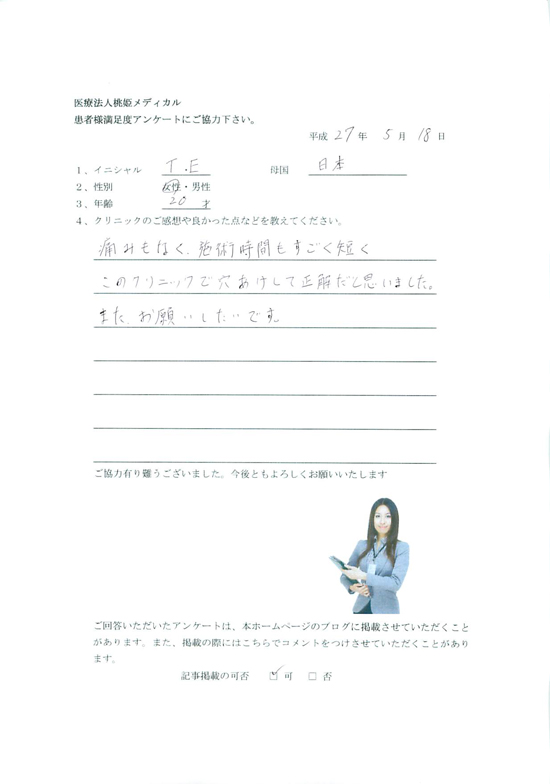 医療法人桃姫メディカル
患者様満足度アンケートにご協力下さい。
平成 27 年 5 月 18 日
1、イニシャル T.E 母国 日本
2、性別 女性・男性
3、年齢 20 才
4、クリニックのご感想や良かった点などを教えてください。
痛みもなく、施術時間もすごく短く
このクリニックで穴あけして正解だと思いました。
また、お願いしたいです
ご協力有り難うございました。今後ともよろしくお願いいたします
ご回答いただいたアンケートは、本ホームページのブログに掲載させていただくこと
があります。また、掲載の際にはこちらでコメントをつけさせていただくことがあり
ます。
記事掲載の可否 ☑ 可 □ 否